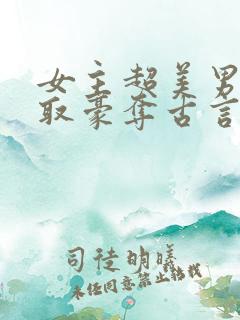 女主超美男
取豪夺古言
司徒明曦
未经同意禁止转载